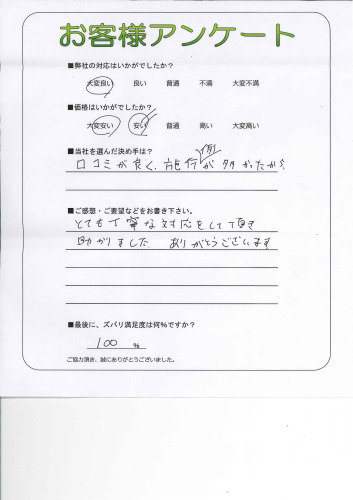 お客様アンケート
■弊社の対応はいかがでしたか？
大変良い 良い 普通 不満 大変不満
■価格はいかがでしたか？
大変安い 安い 普通 高い 大変高い
■当社を選んだ決め手は？
口コミが良く、施行例が多かったから
■ご感想・ご要望などをお書き下さい。
とても丁寧な対応をして頂き
助かりました ありがとうございます
■最後に、ズバリ満足度は何％ですか？
100 %
ご協力頂き、誠にありがとうございました。